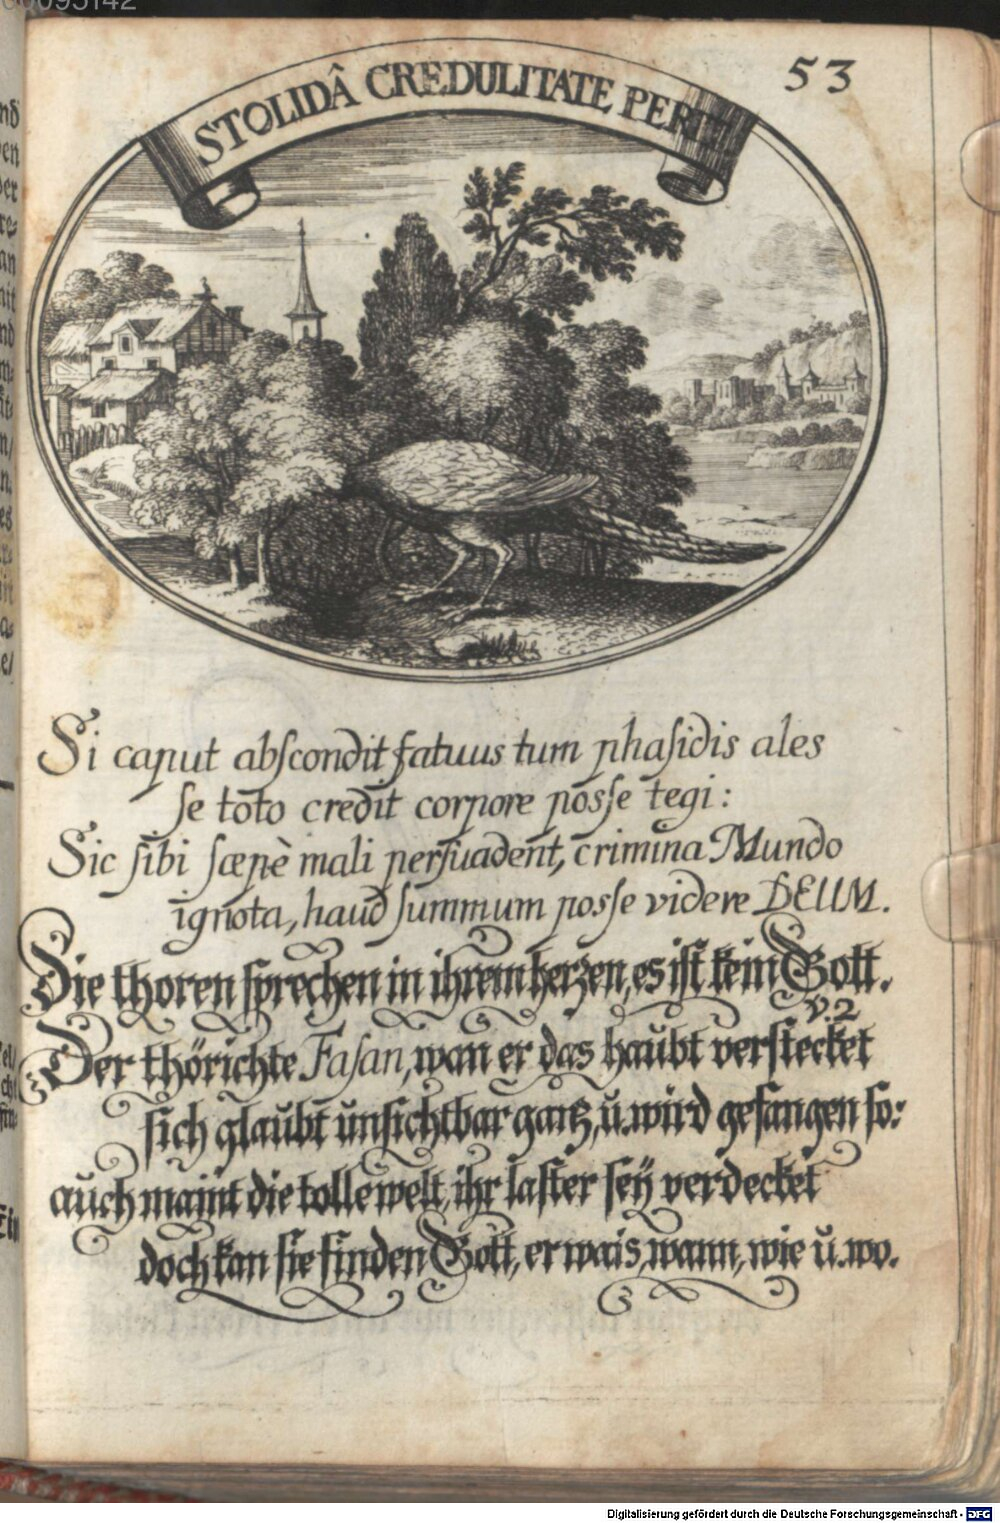 53
STOLIDÂ CREDULITATE PERIT
Si caput abscondit fatuus tum phasidis ales
se toto credit corpore posse tegi:
Sic sibi sæpè mali persuadent, crimina Mundo
ignota, haud summum posse videre DEUM.
Die thoren sprechen in ihrem herzen, es ist kein Gott.
v. 2
Der thörichte Fasan, wan er das haubt verstecket
sich glaubt unsichtbar gantz, u. wird gefangen so:
auch maint die tolle welt, ihr laster seÿ verdecket
doch kan sie finden Gott, er wais, wann, wie u. wo.
Digitalisierung gefördert durch die Deutsche Forschungsgemeinschaft - DFG